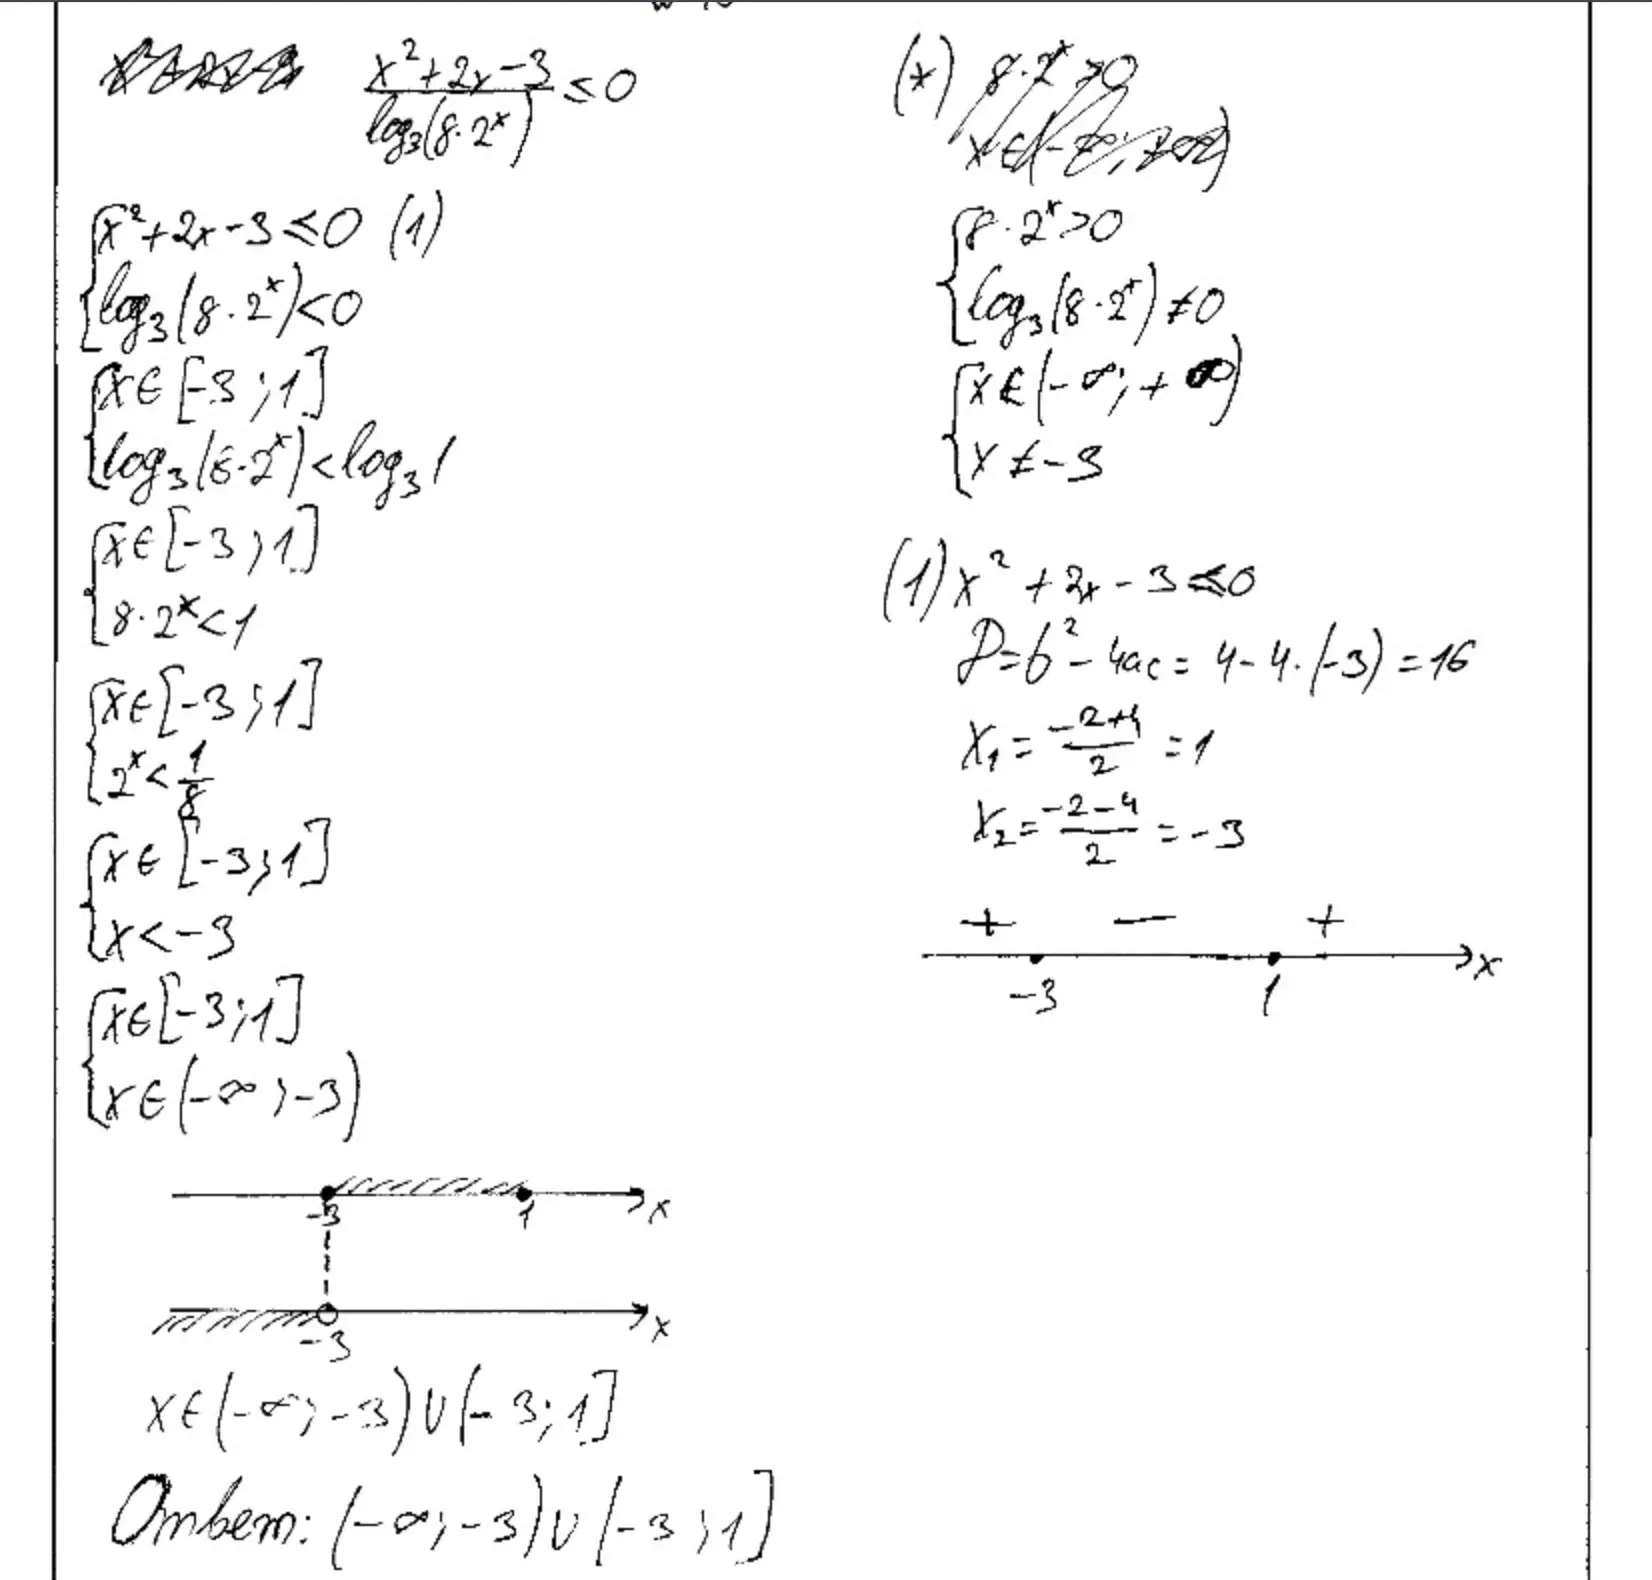 (x²+2x-3)/(log₃(8·2ˣ)) ≤ 0
{ x²+2x-3 ≤ 0 (1)
log₃(8·2ˣ) < 0
{ x ∈ [-3; 1]
log₃(8·2ˣ) < log₃ 1
{ x ∈ [-3; 1]
8·2ˣ < 1
{ x ∈ [-3; 1]
2ˣ < 1/8
{ x ∈ [-3; 1]
x < -3
{ x ∈ [-3; 1]
x ∈ (-∞; -3)
-3 1 x
-3 x
x ∈ (-∞; -3) ∪ (-3; 1]
Ответ: (-∞; -3) ∪ (-3; 1]
(*) 8·2ˣ > 0
x ∈ (-∞; +∞)
{ 8·2ˣ > 0
log₃(8·2ˣ) ≠ 0
{ x ∈ (-∞; +∞)
x ≠ -3
(1) x² + 2x - 3 ≤ 0
D = b² - 4ac = 4 - 4·(-3) = 16
x₁ = (-2+4)/2 = 1
x₂ = (-2-4)/2 = -3
+ − +
-3 1 x